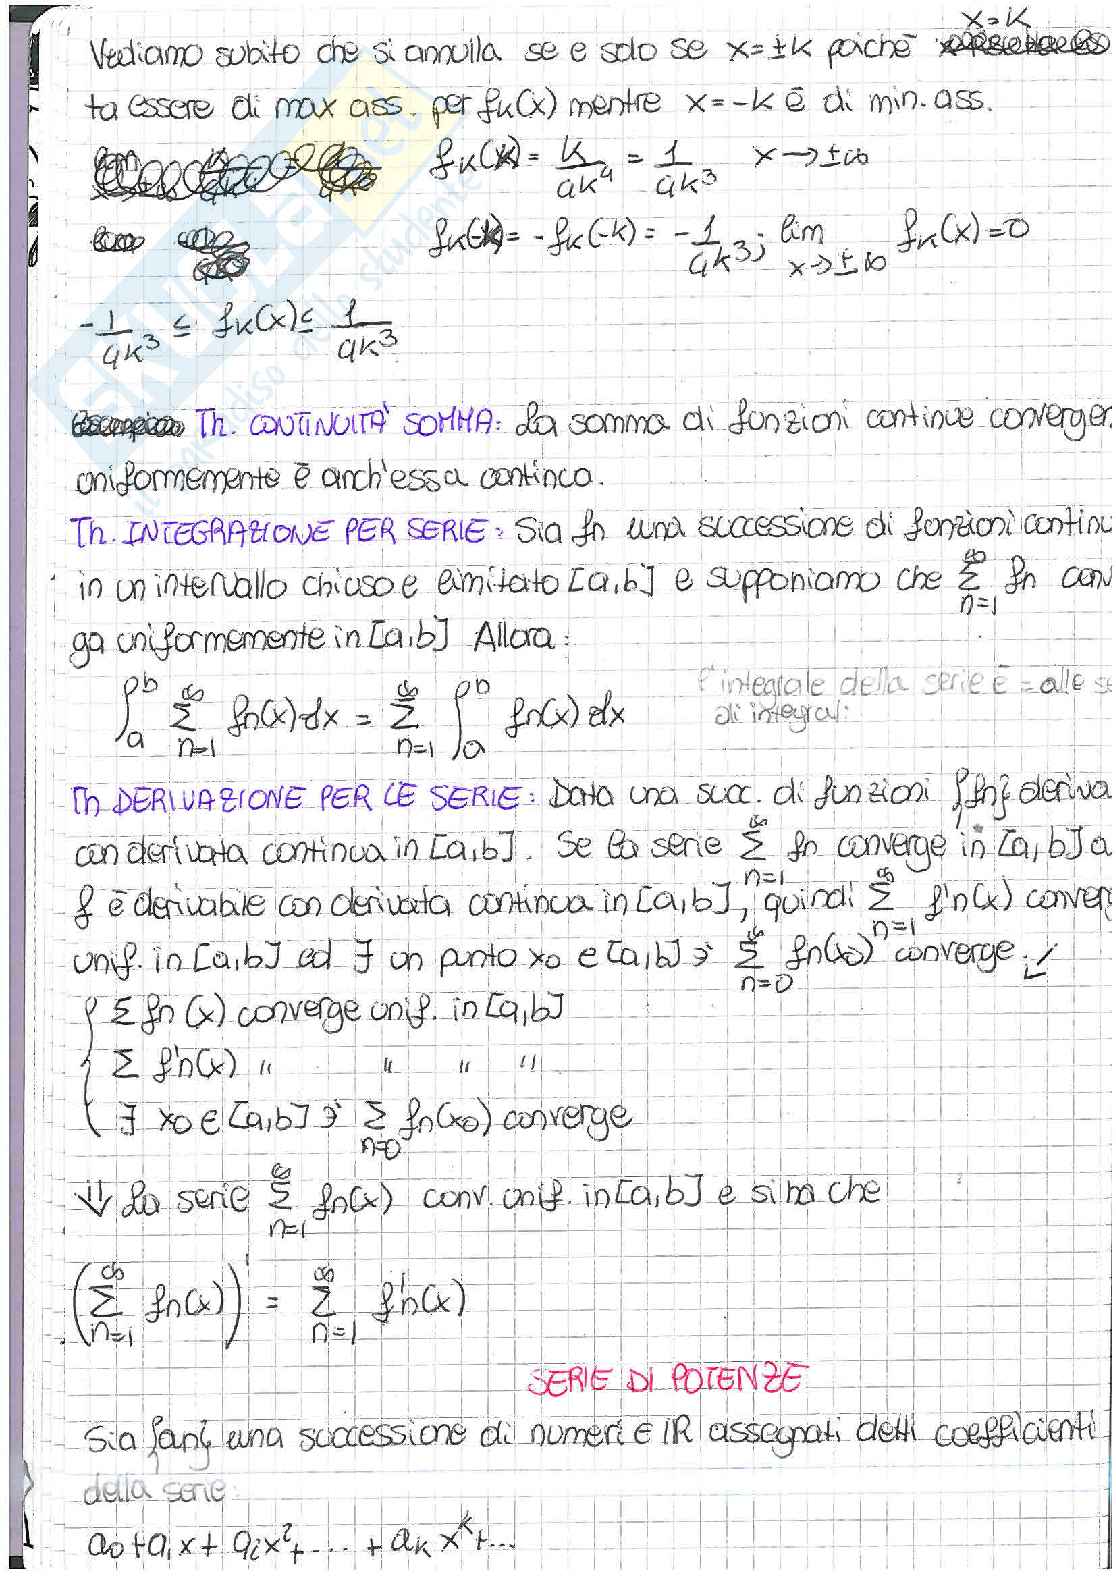 x=k
Vediamo subito che si annulla se e solo se x=±k poichè
ta essere di max ass. per fk(x) mentre x=-k è di min. ass.
fk(k) = k/4k⁴ = 1/4k³ x→±∞
fk(-k) = -fk(-k) = -1/4k³; lim x→±∞ fk(x)=0
-1/4k³ ≤ fk(x) ≤ 1/4k³
Th. CONTINUITA' SOMMA: La somma di funzioni continue convergen
uniformemente è anch'essa continua.
Th. INTEGRAZIONE PER SERIE: Sia fn una successione di funzioni continu
in un intervallo chiuso e limitato [a,b] e supponiamo che ∞ Σ n=1 fn conv
ga uniformemente in [a,b] Allora:
∫ₐᵇ ∞ Σ n=1 fn(x) dx = ∞ Σ n=1 ∫ₐᵇ fn(x) dx l'integrale della serie è = alle se
di integrali
Th DERIVAZIONE PER LE SERIE: Data una succ. di funzioni {fn} deriva
con derivata continua in [a,b]. Se la serie ∞ Σ n=1 fn converge in [a,b] a
f è derivabile con derivata continua in [a,b], quindi ∞ Σ n=1 f'n(x) conver
unif. in [a,b] ed ∃ un punto x₀ ∈ [a,b] ∋' ∞ Σ n=0 fn(x₀) converge.
{ Σ fn(x) converge unif. in [a,b]
Σ f'n(x) " " " "
∃ x₀ ∈ [a,b] ∋' Σ n=0 fn(x₀) converge
⇓ La serie ∞ Σ n=1 fn(x) conv. unif. in [a,b] e si ha che
(∞ Σ n=1 fn(x))' = ∞ Σ n=1 f'n(x)
SERIE DI POTENZE
Sia {an} una successione di numeri ∈ IR assegnati detti coefficienti
della serie:
a₀+a₁x+a₂x²+...+aₖxᵏ+...